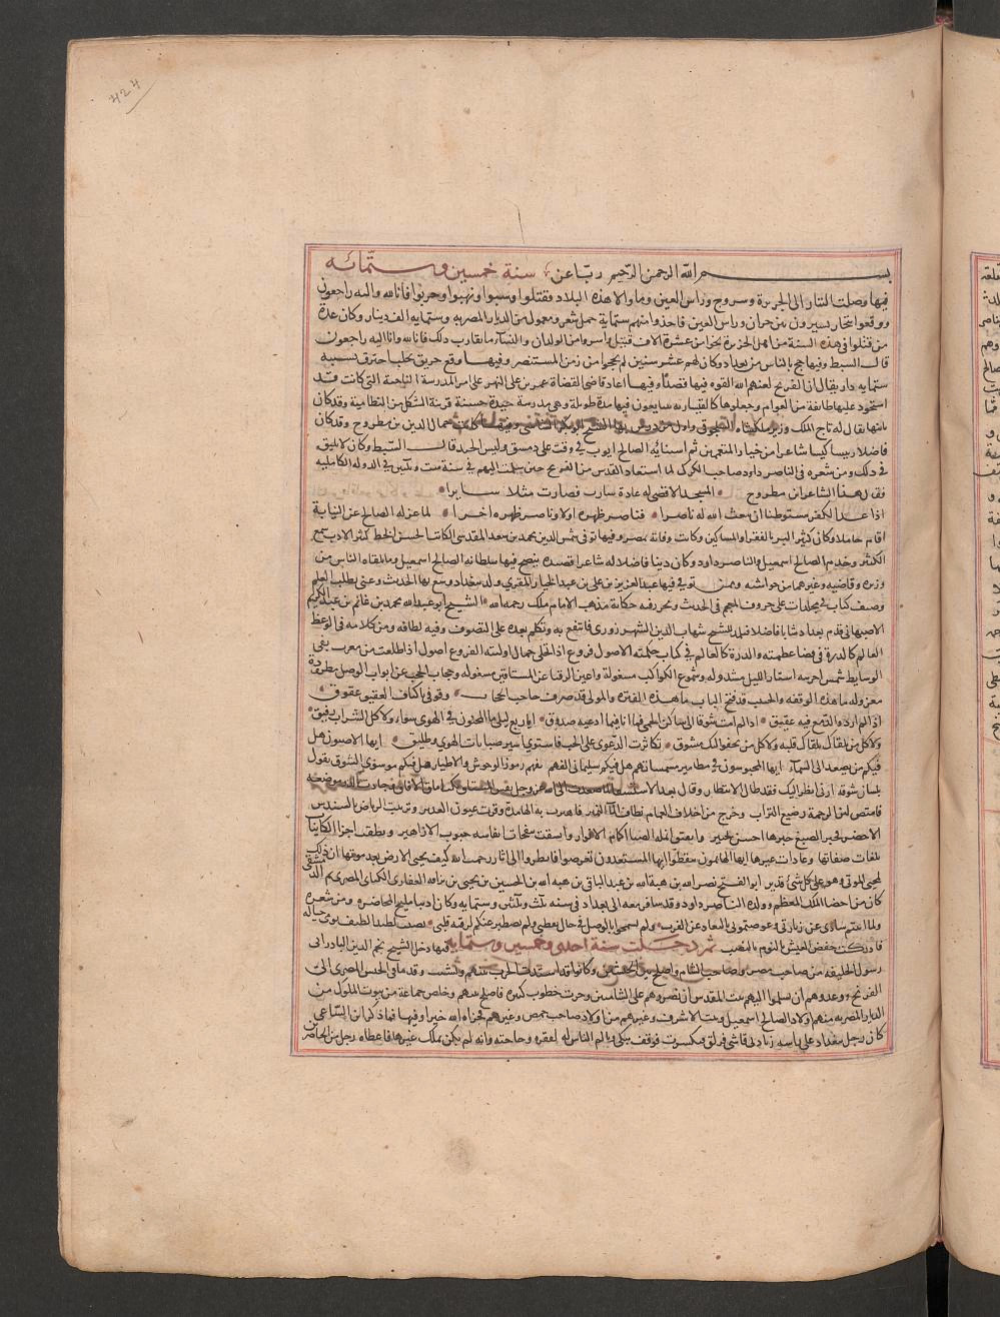 ٤٢٤
بسم الله الرحمن الرحيم رب أعن سنة خمسين وستمائه
فيها وصلت التتار الى الجزيرة وسروج وراس العين وما والا هذه البلاد فقتلوا وسبوا ونهبوا وخربوا فانا لله واليه راجعون
ووقعوا بتجار يسيرون بين حران وراس العين فاخذوا منهم ستماية حمل سكر ومعمول من الديار المصريه وستمايه الف دينار وكان عدة
من قتلوا في هذه السنة من اهل الجزيرة نحوا من عشرة الاف قتيل واسروا من الولدان والنساء ما يقارب ذلك فانا لله وانا اليه راجعون
قال السبط وفيها حج بالناس من بغداد وكان لهم عشر سنين لم يحجوا من زمن المستنصر وفيها وقع حريق بحلب احترق بسببه
ستمايه دار يقال ان الفرنج لعنهم الله القوه فيها قصدا وفيها اعاد قاضي القضاة عمر بن علي النهر على امر المدرسة التاجية التي كانت قد
استحوذ عليها طايفة من العوام وجعلوها كالقيساريه يتبايعون فيها مدة طويلة وهي مدرسة جيدة حسنة قريبة الشكل من النظامية وقد كان
بانيها يقال له تاج الملك وزير ملكشاه السلجوقي واول من درس بها الشيخ ابو بكر الشاشي وفيها كانت وفاة جمال الدين بن مطروح وقد كان
فاضلا رييسا كيسا شاعرا من خيار المتعممين ثم استنابه الصالح ايوب في وقت على دمشق ولبس الجند قال السبط وكان لا يليق
في ذلك ومن شعره في الناصر داود صاحب الكرك لما استعاد القدس من الفرنج حين سلمت اليهم في سنة ست وثلثين في الدوله الكامليه
فقال هذا الشاعر ابن مطروح المسجد الاقصى له عادة سارت فصارت مثلا سايرا
اذا غدا للكفر مستوطنا ان يبعث الله له ناصرا فناصر طهره اولا وناصر طهره اخرا لما عزله الصالح عن النيابة
اقام خاملا وكان كثير البر بالفقراء والمساكين وكانت وفاته بمصر وفيها توفي شمس الدين محمد بن سعد المقدسي الكاتب الحسن الخط كثير الادب سمع
الكثير وخدم الصالح اسمعيل والناصر داود وكان دينا فاضلا له شاعرا قصيدة ينصح فيها سلطانه الصالح اسمعيل وما يلقاه الناس من
وزيره وقاضيه وغيرهما من حواشيه وممن توفي فيها عبد العزيز بن علي بن عبد الجبار المقري ولد ببغداد وسمع بها الحديث وعني بطلب العلم
وصنف كتاب في مجلدات على حروف المعجم في الحديث وحرر فيه حكاية مذهب الامام ملك رحمه الله الشيخ ابو عبد الله محمد بن غانم بن عبد الكريم
الاصبهاني قدم بغداد شابا فاضلا فتلمذ للشيخ شهاب الدين السهروردي فانتفع به وتكلم بعده على التصوف وفيه لطافه ومن كلامه في الوعظ
العالم كالذرة في فضا عظمته والذرة كالعالم في كتاب حكمته الاصول فروع اذا تجلى جمال اوليته الفروع اصول اذا طلعت من مغرب نفي
الوسايط شمس اخريته استار الليل مسدوله وشموع الكواكب مشغولة واعين الرقبا عن المشتاقين مشغوله وحجاب الحجب عن ابواب الوصل مطرودة
معزوله ما هذه الوقفه والحبيب قد فتح الباب ما هذه الفتره والمولى قد صرف حاجب الحجاب وقوفي باكناف العقيق عقوق
اذا لم ارد والدمع فيه عقيق اذا لم امت شوقا الى ساكن الحمى فما انا فيما ادعيه صدوق ايا ربع ليلى ما المحبون في الهوى سوا ولا كل الشراب رحيق
ولا كل من يلقاك يلقاك قلبه ولا كل من يحنو اليك مشوق تكاثرت الدعوى على الحب فاستوى اسير صبابات الهوى وطليق ايها الامنون هل
فيكم من يصعد الى السماء ايها المحبوسون في مطامير مسمياتهم هل فيكم سليماني الفهم يفهم رموز الوحوش والاطيار هل فيكم موسوي الشوق يقول
بلسان شوقه ارني انظر اليك فقد طال الانتظار
فامتص لبن الرحمة رضيع التراب وخرج من اخلاف الغمام نطاف الما النمير فاهتزت به الهامدة وقرت عيون المدر وتزينت الرياض بالسندس
الاخضر فحبر الصبغ حبرها احسن تحبير وانفتق بانملة الصبا اكمام الانوار وانشقت بنفحات انفاسه جيوب الازاهير ونطقت اجزا الكاينات
بلغات صفاتها وعادات عبرها ايها النايمون تيقظوا ايها المستبعدون تعرضوا فانظروا الى اثار رحمت الله كيف يحيي الارض بعد موتها ان ذلك
لمحيي الموتى وهو على كل شئ قدير ابو الفتح نصر الله بن هبة الله بن عبد الباقي بن هبة الله بن الحسين بن يحيى الغفاري الكناني المصري ثم الدمشقي
كان من اخصا الملك المعظم وولده الناصر داود وقد سافر معه الى بغداد في سنة ثلث وثلثين وستمايه وكان اديبا مليح المحاضره ومن شعره
ثم دخلت سنة احدى وخمسين وستمايه فيها دخل الشيخ نجم الدين البادراني
رسول الخليفه بين صاحب مصر وصاحب الشام واصلح بين الجيشين وكانوا قد اشتد الحرب بينهم ونشبت وقد مالى الجيش المصري الى
الفرنج ووعدوهم ان يسلموا اليهم بيت المقدس ان نصروهم على الشاميين وجرت خطوب كثيره فاصلح بينهم وخلص جماعة من بيوت الملوك من
الديار المصريه منهم اولاد الصالح اسمعيل وبنت الاشرف وغيرهم من اولاد صاحب حمص وغيرهم فجزاه الله خيرا وفيها فيما ذكر ابن الساعي
كان رجل ببغداد على راسه زبادي قاشي فزلق فتكسرت فوقف يبكي وتالم الناس له لفقره وحاجته وانه لم يكن يملك غيرها فاعطاه رجل من الحاضرين